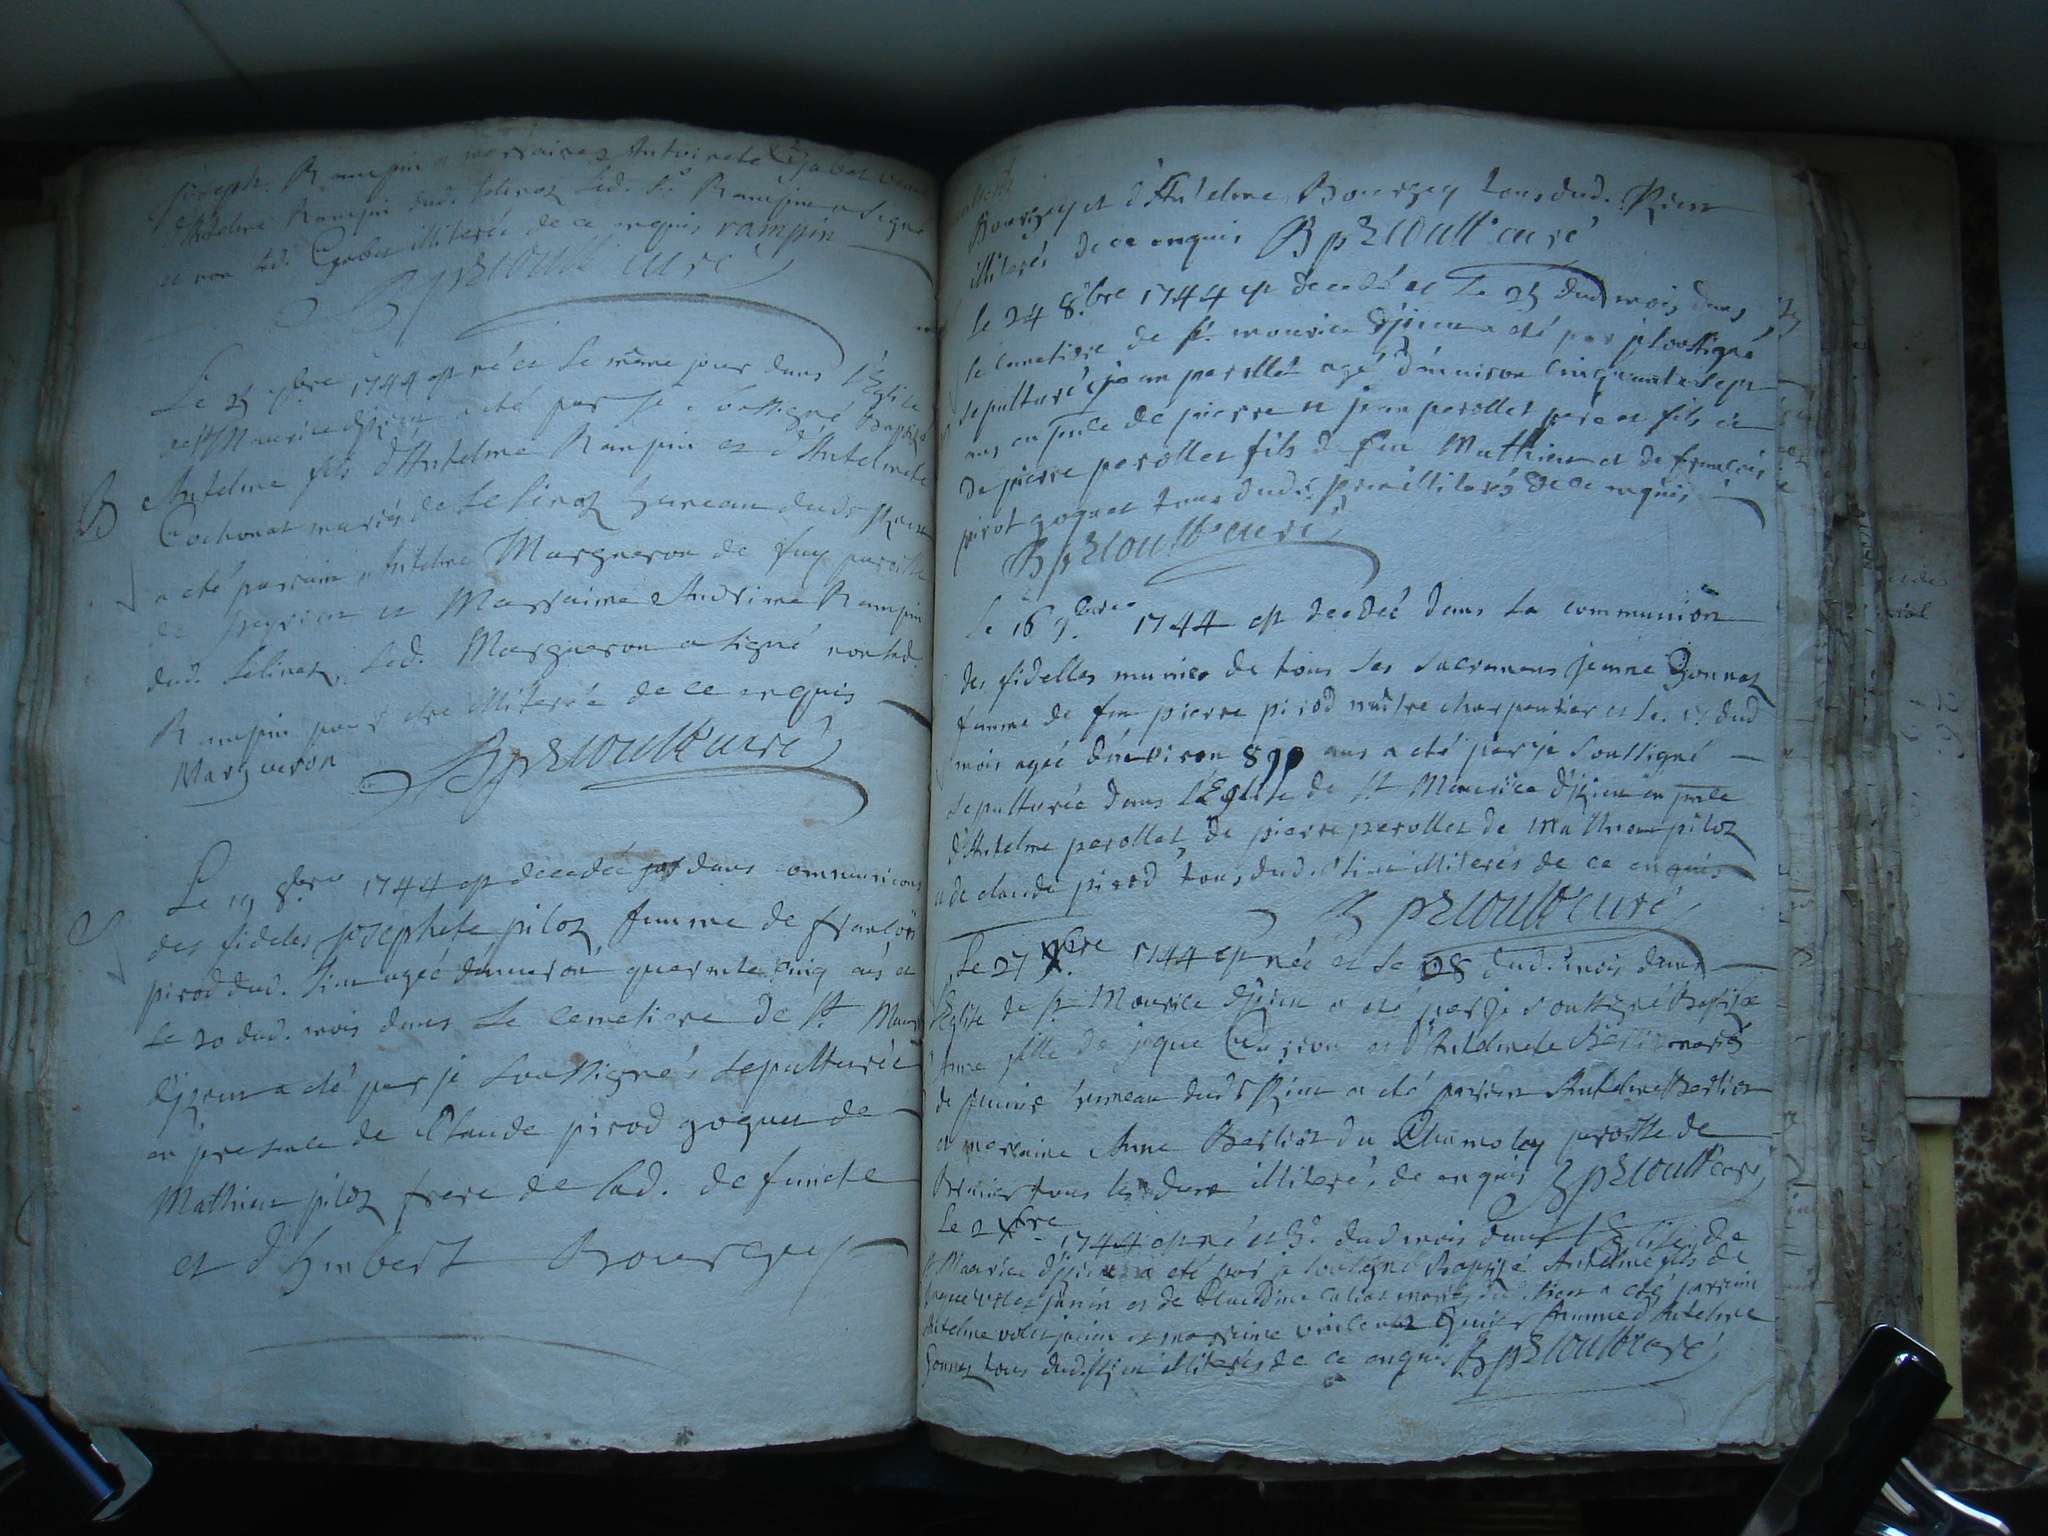 joseph Rampin a marraines Antoinete Gabet
d'Antelme Rampin dud. Selinaz led. Sr Rampin a signé
et non lad. Gabet illiterée de ce enquis rampin
B prloult curé
Le 25 7bre 1744 est né et le même jour dans l'Eglise
de St Maurice d'Izieu a été par je soussigné Baptisé
B Antelme fils d'Antelme Rampin et d'Antelmete
Cochonat mariés de Selinaz hameau dud.
a été parrain Antelme Margueron de paroisse
de et Marraine Andrine Rampin
dud. Selinaz, led. Margueron a signé non lad.
Rampin pour être illiterée de ce enquis
Margueron B prloult curé
Le 19 8bre 1744 est decedée dans communions
des fideles josephete piloz femme de françois
pirod dud. agée d'environ quarente cinq ans et
le 20 dud. mois dans le cemetiere de St Mauri
d'Izieu a été par je soussigné sepulturée
en presence de Claude pirod goguet de
Mathieu piloz frere de lad. defuncte
et d'himbert Bourgey
Bourgey et d'Antelme Bourgey tous dud. Izieu
illiterés de ce enquis B prloult curé
Le 24 8bre 1744 est decedé et le 25 dud mois dans
le cemetiere de St. maurice d'Izieu a été par je soussigné
sepulturé jean perollet agé d'environ cinquante sept
ans en pnce de pierre et jean perollet pere et fils et
de pierre perollet fils de feu Mathieu et de françois
pirot goguet tous dud. Izieu illiterés de ce enquis
B prloult curé
Le 16 9bre 1744 est decedée dans la communion
des fidelles munie de tous les sacremens jeanne Gonnaz
femme de feu pierre pirod maître charpentier et le 17 dud
mois agée d'environ ans a été par je soussigné
sepulturée dans l'Eglise de St Maurice d'Izieu en pnce
d'Antelme perollet, de pierre perollet de Mathieu piloz
et de claude pirod tous dud. Izieu illiterés de ce enquis
B prloult curé
Le 27 1744 est née et le 28 dud. mois dans
l'Eglise de St Maurice d'Izieu a été par je soussigné Baptisée
Anne fille de jaque et d'Antelmete Berlioz mariés
de hameau dud. Izieu a été parrain Antelme Berlioz
et marraine Anne Berlioz du paroisse de
tous les deux illiterés de enquis B prloult curé
Le 2 Xbre 1744 est né et 3e dud mois dans l'Eglise de
St Maurice d'Izieu a été par je soussigné Baptisé Antelme fils de
jaque janin et de Claudine mariés dud. Izieu a été parrain
Antelme janin et marraine femme d'Antelme
Gonnaz tous dud. Izieu illiterés de ce enquis B prloult curé